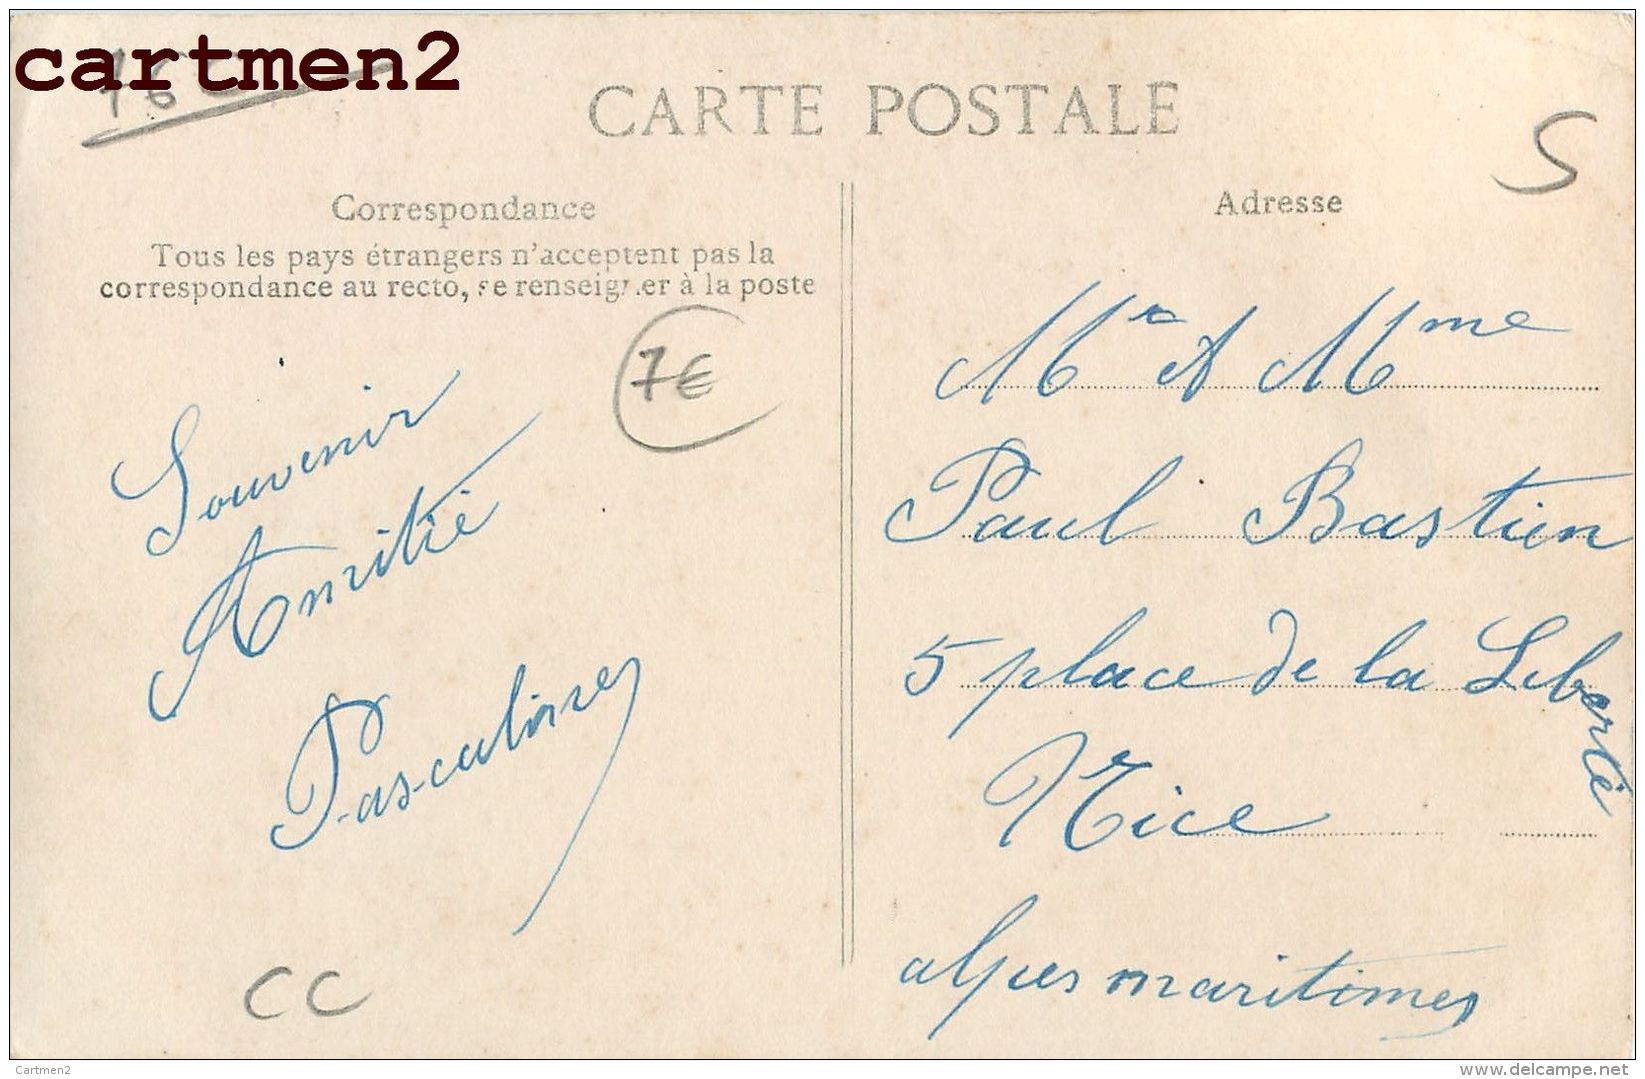 cartmen2
CARTE POSTALE
S
Correspondance
Tous les pays étrangers n'acceptent pas la
correspondance au recto, se renseigner à la poste
7€
Souvenir
Amitié
CC
Adresse
Mr & Mme
Paul Bastien
5 place de la Liberté
Nice
alpes maritimes
Cartmen2
www.delcampe.net